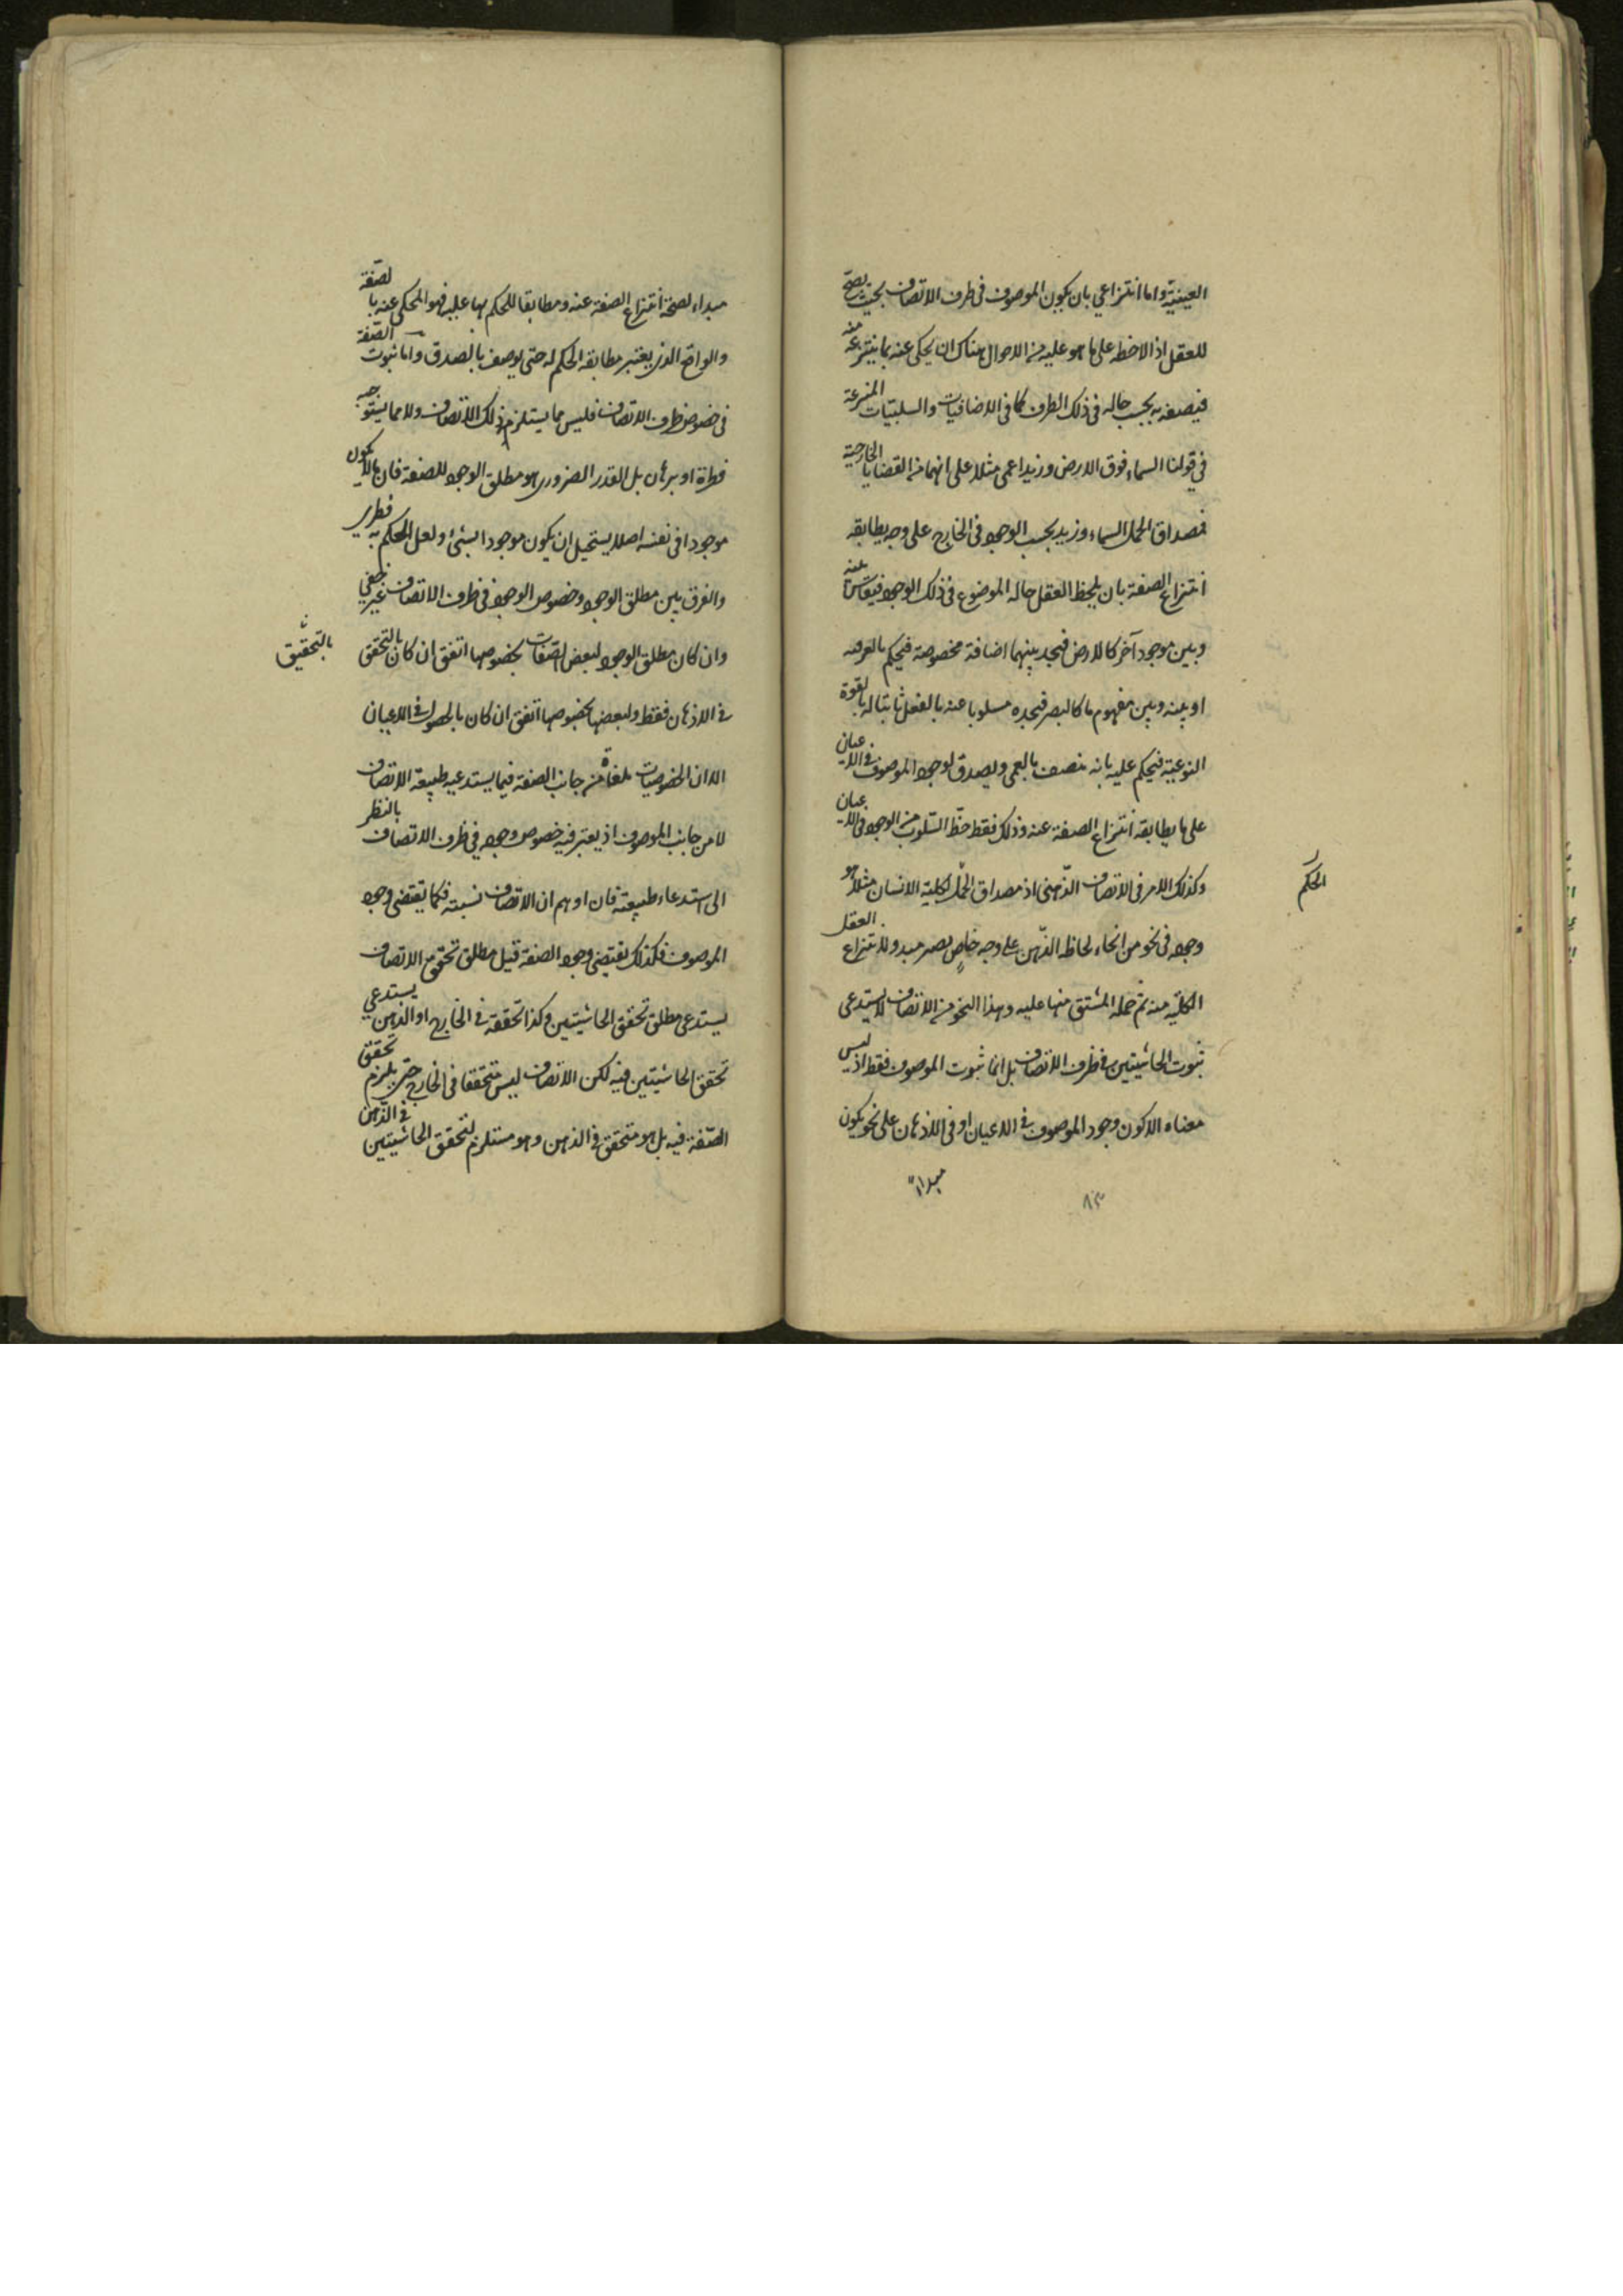 العينيّة واما انتزاعي بان يكون الموصوف في ظرف الاتصاف بحيث يصحّ
للعقل اذا لاحظه على ما هو عليه من الاحوال هناك ان يحكى عنه بما ينتزعه منه
فيصفه به بحسب حاله في ذلك الظرف كما في الاضافيات والسلبيّات المنتزعة
في قولنا السماء فوق الارض وزيد اعمى مثلا على انهما من القضايا الخارجية
فمصداق الحمل السماء وزيد بحسب الوجود في الخارج على وجه يطابقه
انتزاع الصفة بان يلحظ العقل حال الموضوع في ذلك الوجود فيقاس بينه
وبين موجود آخر كالارض فيجد بينهما اضافة مخصوصة فيحكم بالفوقه
او بينه وبين مفهوم ما كالبصر فيجده مسلوبا عنه بالفعل ثابتا له بالقوة
النوعية فيحكم عليه بانه متصف بالعمى ويصدق لوجود الموصوف في الاعيان
على ما يطابقه انتزاع الصفة عنه وذلك فقط حظّ السّلوب من الوجود في الاعيان
وكذلك الامر في الاتصاف الذّهنى اذ مصداق الحمل لكلية الانسان مثلا هو
الحكم
وجوده في نحو من انحاء لحاظ الذّهن على وجه خاصٍ يصير مبدءا لانتزاع العقل
الكليّة منه ثم حمله المشتق منها عليه وهذا النحو من الاتصاف لا يستدعى
ثبوت الحاشيتين في ظرف الاتصاف بل انما ثبوت الموصوف فقط اذ ليس
معناه الا كون وجود الموصوف في الاعيان او في الاذهان على نحو يكون
مبداء
٨٣
مبداء لصحة انتزاع الصفة عنه ومطابقا للحكم بها عليه فهو المحكى عنه بالصّفة
والواقع الذى يعتبر مطابقة الحكم له حتى يوصف بالصدق واما ثبوت الصّفة
في خصوص ظرف الاتصاف فليس مما يستلزم ذلك الاتصاف ولا مما يستوجبه
فطرة او برهان بل القدر الضرورى هو مطلق الوجود للصفة فان ما لا يكون
موجودا في نفسه اصلا يستحيل ان يكون موجودا لشئ ولعل الحكم به فطرى
والفرق بين مطلق الوجود وخصوص الوجود في ظرف الاتصاف غير خفي
وان كان مطلق الوجود لبعض الصّفات بخصوصها اتفق ان كان بالتحقق
بالتّحقيق
في الاذهان فقط ولبعضها بخصوصها اتفق ان كان بالحصول في الاعيان
الا ان الخصوصيات ملغاة من جانب الصفة فيما يستدعيه طبيعة الاتصاف
لا من جانب الموصوف اذ يعتبر فيه خصوص وجوده في ظرف الاتصاف بالنظر
الى استدعاء طبيعته فان اوهم ان الاتصاف نسبته فكما يقتضى وجود
الموصوف فكذلك يقتضى وجود الصفة قيل مطلق تحقق الاتصاف
يستدعى مطلق تحقق الحاشيتين وكذا تحققه في الخارج او الذهن يستدعي
تحقق الحاشيتين فيه لكن الاتصاف ليس متحققا في الخارج حتى يلزم تحقق
الصّفة فيه بل هو متحقق في الذهن وهو مستلزم لتحقق الحاشيتين في الذّهن